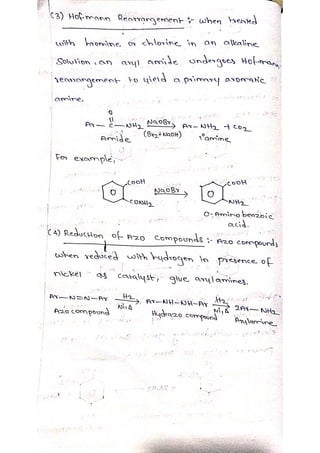 (3) Hofmann Rearrangement :- When treated
with bromine or chlorine in an alkaline
solution, an aryl amide undergoes Hofmann
rearrangement to yield a primary aromatic
amine.
O
Ar—C—NH2 NaOBr Ar—NH2 + CO2
(Br2+NaOH)
Amide 1° amine
For example,
COOH COOH
NaOBr
CONH2 NH2
O-Aminobenzoic
acid.
(4) Reduction of Azo Compounds :- Azo compounds
when reduced with hydrogen in presence of
nickel as catalyst, give arylamines.
Ar—N=N—Ar H2 Ar—NH—NH—Ar H2 2Ar—NH2
Ni,Δ Ni,Δ
Azo compound Hydrazo compound Arylamine